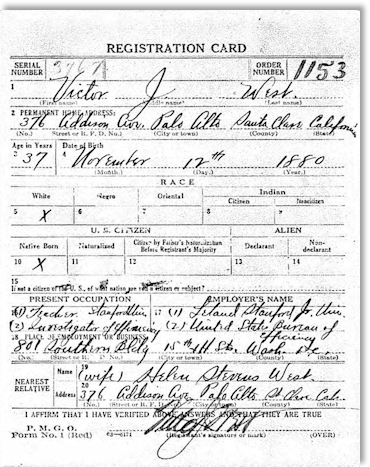 REGISTRATION CARD
SERIAL NUMBER 3767 ORDER NUMBER 1153
1 Victor J. West.
(First name) (Middle name) (Last name)
2 PERMANENT HOME ADDRESS:
376 Addison Ave. Palo Alto Santa Clara California
(No.) (Street or R. F. D. No.) (City or town) (County) (State)
Age in Years Date of Birth
3 37 4 November 12th 1880
(Month.) (Day.) (Year.)
RACE
White Negro Oriental Indian
Citizen Noncitizen
5 X 6 7 8 9
U. S. CITIZEN ALIEN
Native Born Naturalized Citizen by Father's Naturalization Before Registrant's Majority Declarant Non-declarant
10 X 11 12 13 14
15 If not a citizen of the U. S., of what nation are you a citizen or subject?
PRESENT OCCUPATION EMPLOYER'S NAME
16 (1) Teacher Stanford Univ 17 (1) Leland Stanford Jr. Univ.
(2) Investigator of efficiency (2) United States Bureau of Efficiency
18 PLACE OF EMPLOYMENT OR BUSINESS:
801 Southern Bldg 15th & H Sts. Wash. D.C.
(No.) (Street or R. F. D. No.) (City or town) (County) (State)
NEAREST RELATIVE Name 19 (wife) Helen Stevens West.
Address 20 376 Addison Ave. Palo Alto St. Clara Cal.
(No.) (Street or R. F. D. No.) (City or town) (County) (State)
I AFFIRM THAT I HAVE VERIFIED ABOVE ANSWERS AND THAT THEY ARE TRUE
P. M. G. O.
Form No. 1 (Red) 03—6171 (Registrant's signature or mark) (OVER)